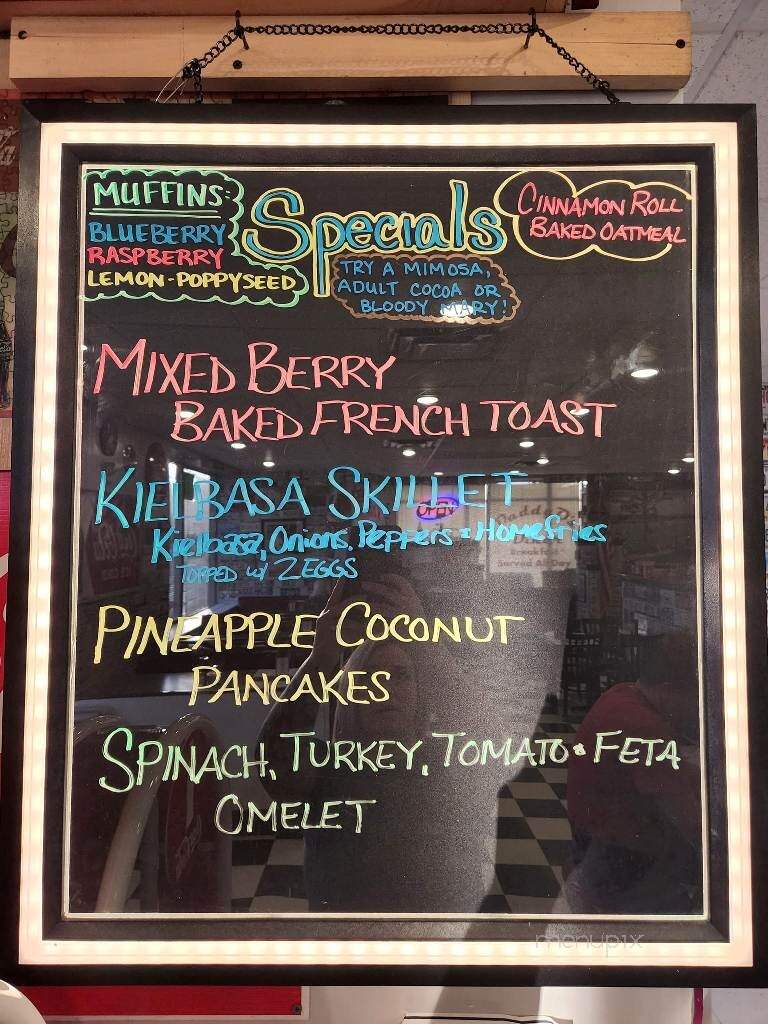 MUFFINS:
BLUEBERRY
RASPBERRY
LEMON-POPPYSEED
Specials
TRY A MIMOSA,
ADULT COCOA OR
BLOODY MARY!
CINNAMON ROLL
BAKED OATMEAL
MIXED BERRY
BAKED FRENCH TOAST
KIELBASA SKILLET
Kielbasa, Onions, Peppers & Homefries
TOPPED W/ 2 EGGS
OPEN
Breakfast
Served All Day
PINEAPPLE COCONUT
PANCAKES
SPINACH, TURKEY, TOMATO & FETA
OMELET
menupix